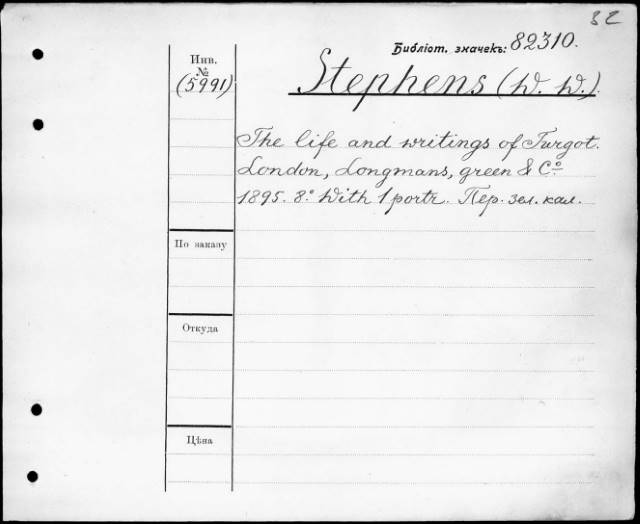 32
Библіот. значекъ: 82310.
Инв.
№
(5991)
Stephens (W. W.)
The life and writings of Turgot.
London, Longmans, green & Cº
1895. 8.º With 1 portr. Пер. зел. кал.
По заказу
Откуда
Цѣна